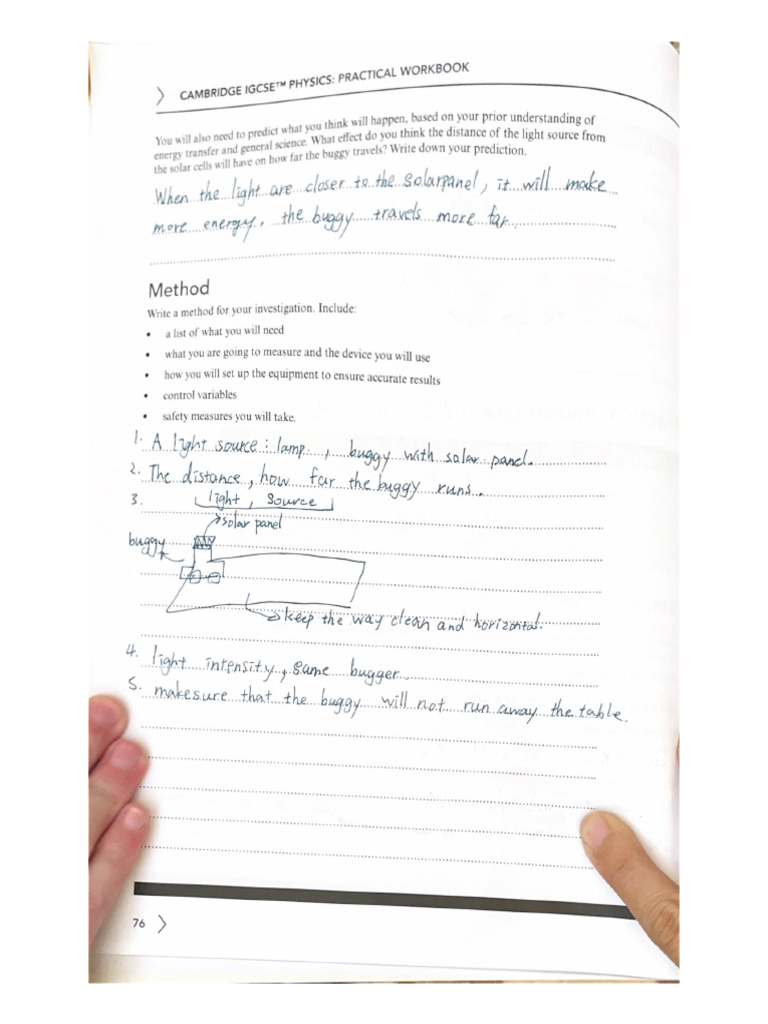 CAMBRIDGE IGCSE™ PHYSICS: PRACTICAL WORKBOOK
You will also need to predict what you think will happen, based on your prior understanding of
energy transfer and general science. What effect do you think the distance of the light source from
the solar cells will have on how far the buggy travels? Write down your prediction.
When the light are closer to the solarpanel, it will make
more energy, the buggy travels more far.
Method
Write a method for your investigation. Include:
• a list of what you will need
• what you are going to measure and the device you will use
• how you will set up the equipment to ensure accurate results
• control variables
• safety measures you will take.
1. A light source: lamp, buggy with solar panel.
2. The distance, how far the buggy runs.
3. light, source
solar panel
buggy
keep the way clean and horizontal.
4. light intensity, same bugger.
5. makesure that the buggy will not run away the table.
76